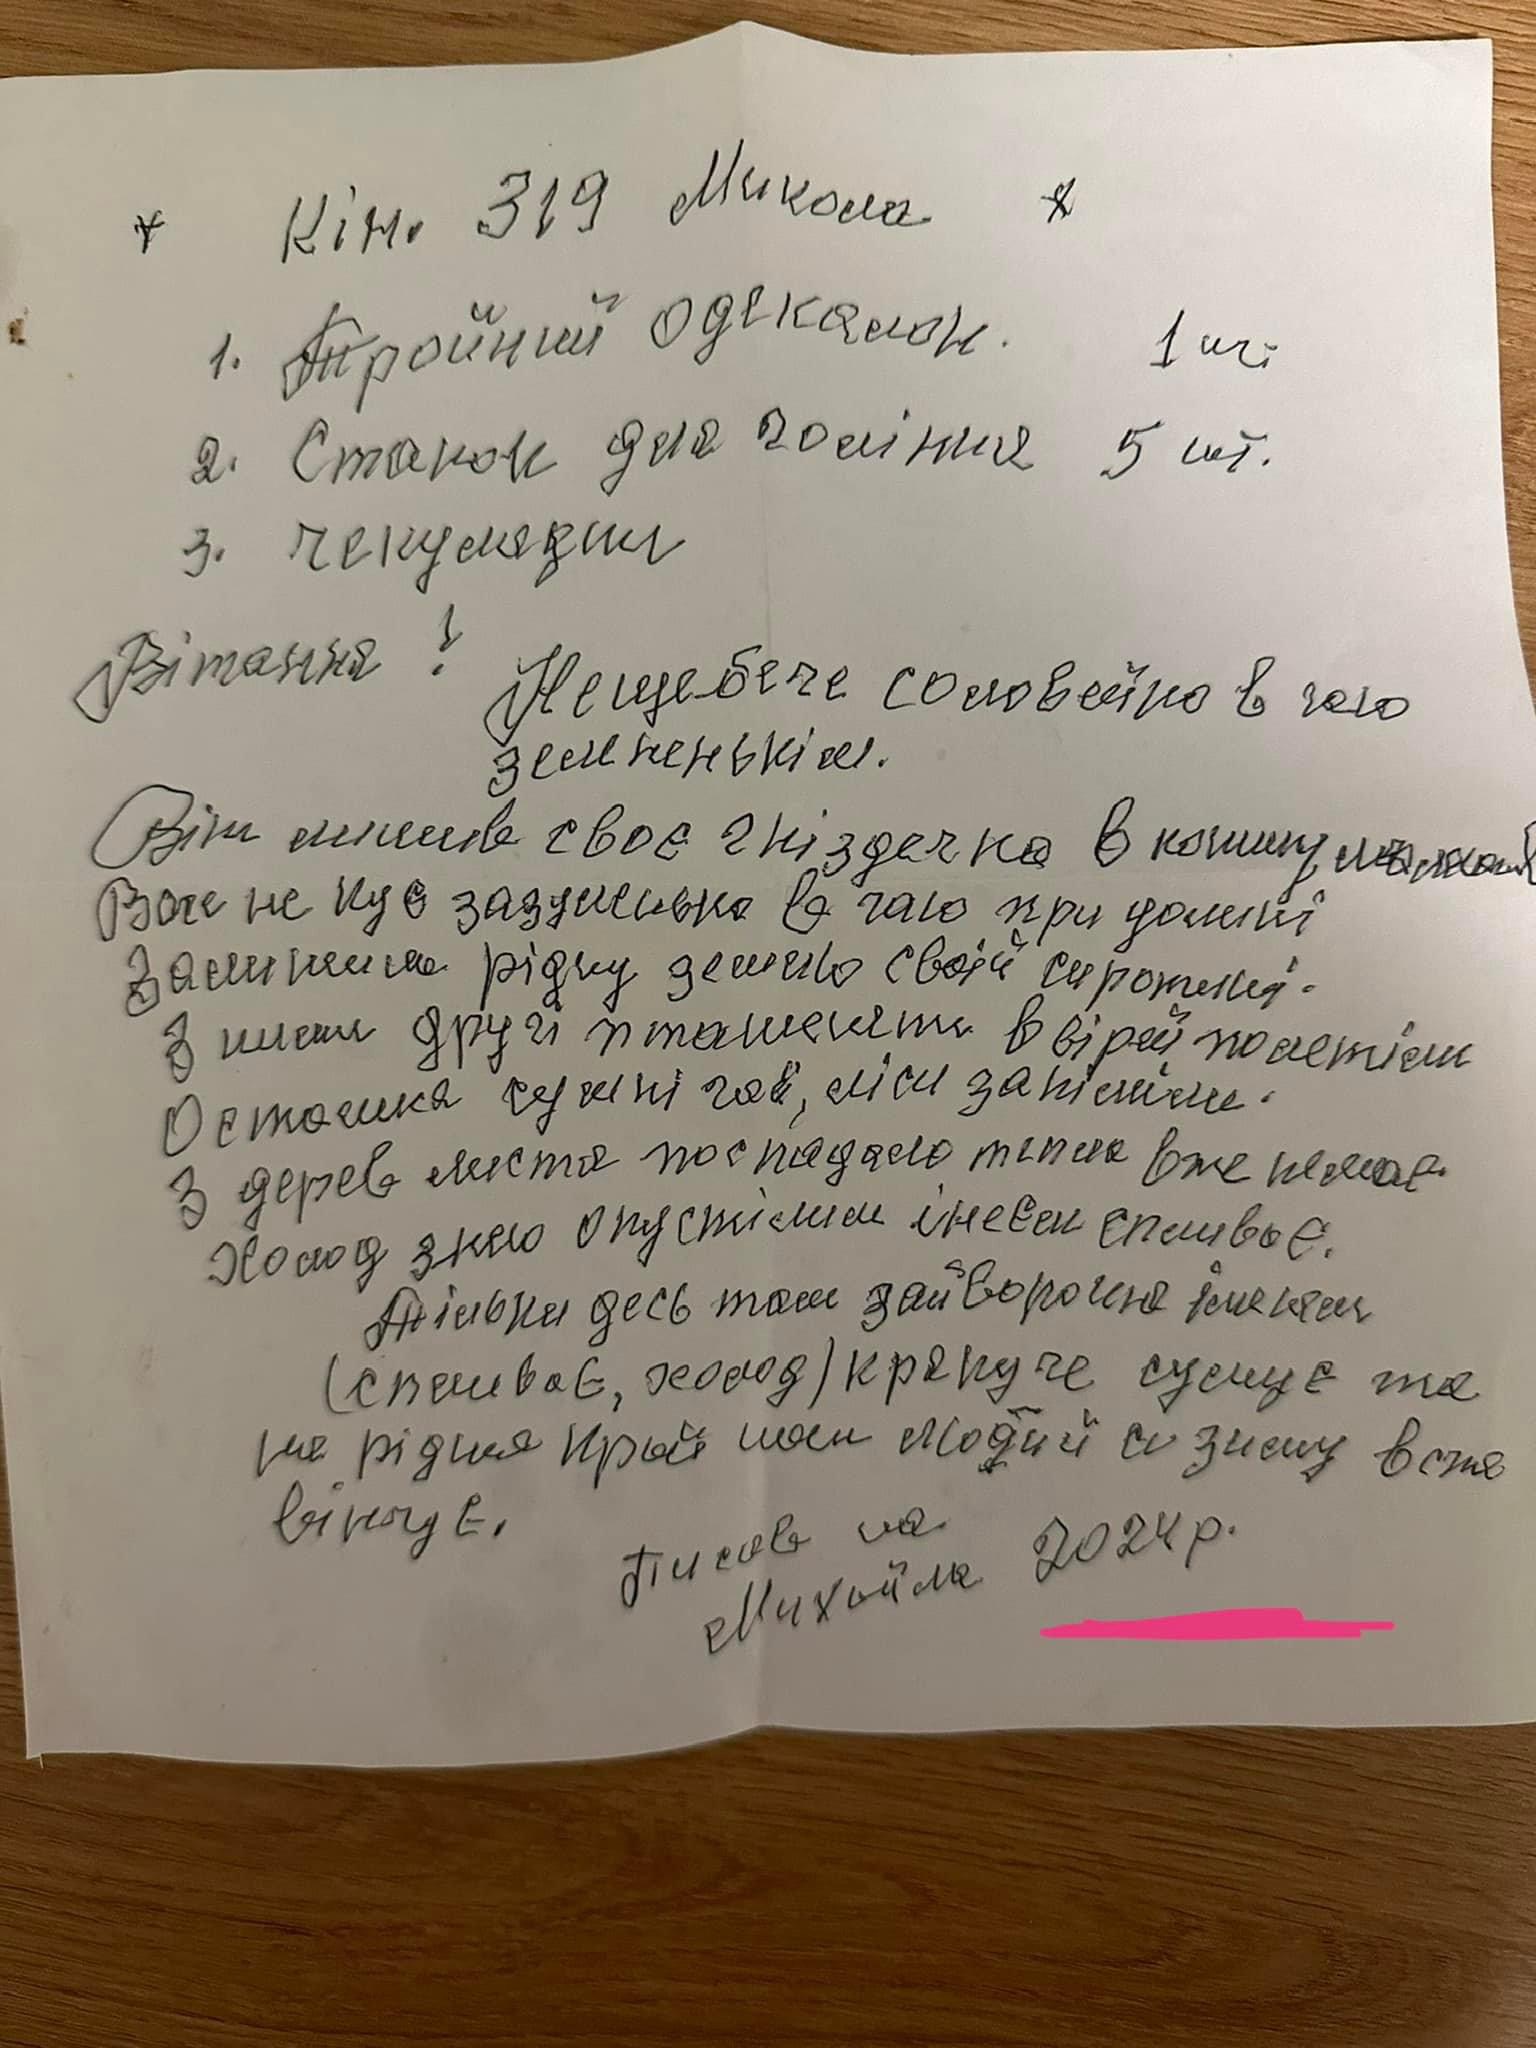 * Кім. 319 Микола *
1. Тройний одекалон. 1 шт.
2. Станок для гоління 5 шт.
3. чекуладки
Вітання! Нещебече соловейко в гаю
зелененькім.
Він лишив своє гніздечко в кошику
Вже не кує зазуленька в гаю при долині
Залишила рідну землю своїй сиротині.
З ними другі пташенята в вірей полетіли
Осталися сумні гаї, ліси заніміли.
З дерев листя поспадало тепла вже немає.
Холод зною опустілим і несен співає.
Тільки десь там зайворочна
(співає, холод) крякуче сумує та
на рідная край наш людній
вікчує.
писав на
Михайла 2024 р.